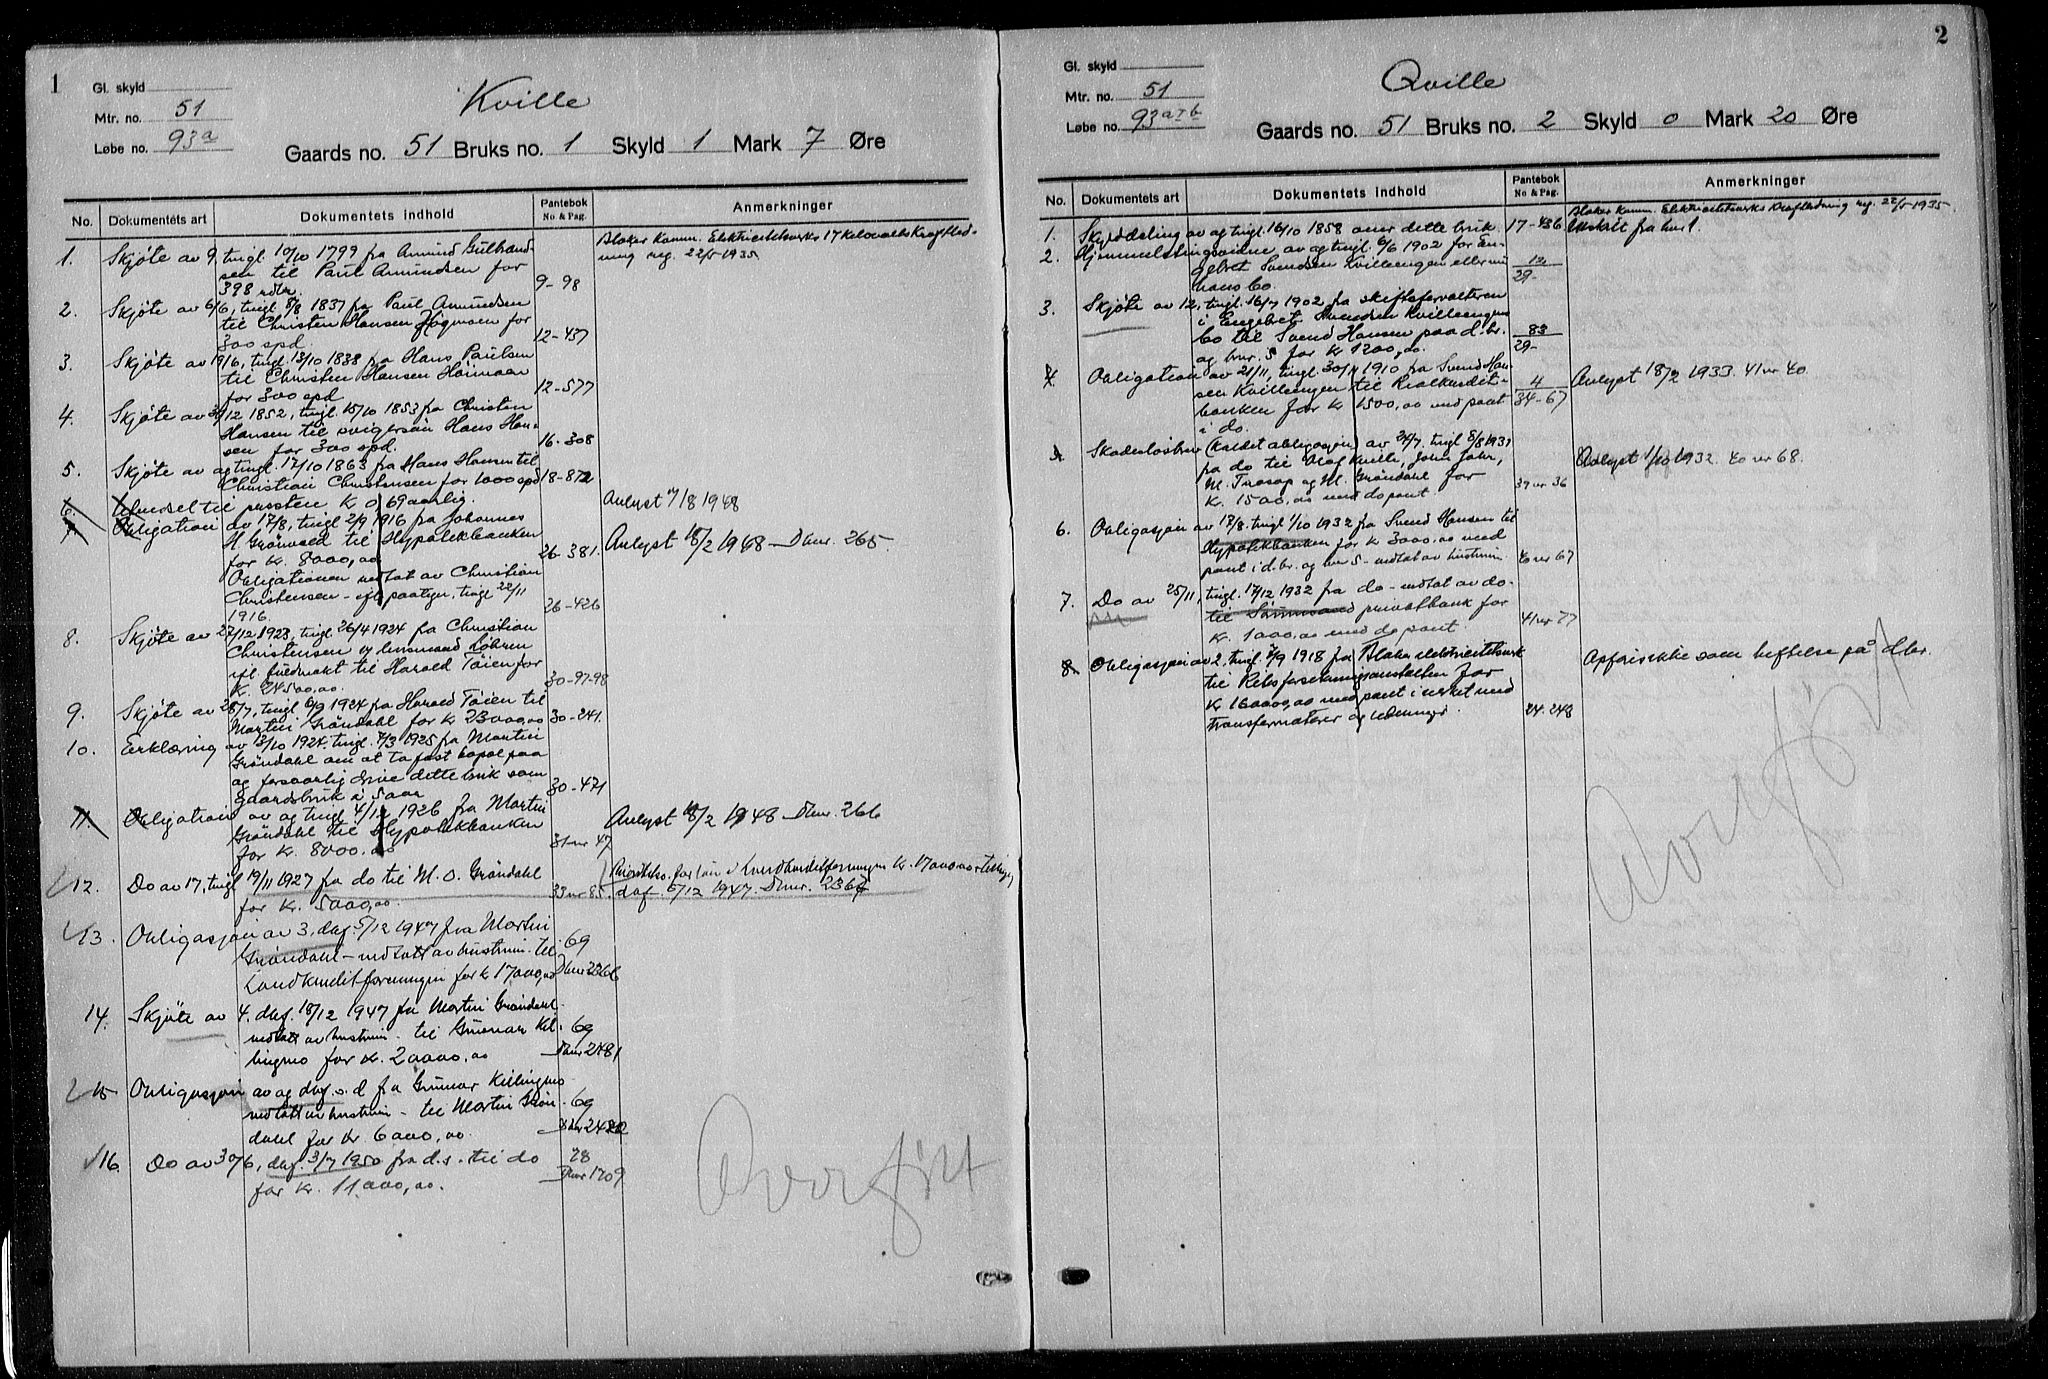 1
Gl. skyld
Mtr. no. 51
Løbe no. 93a
Kville
Gaards no. 51 Bruks no. 1 Skyld 1 Mark 7 Øre
No. Dokumentets art Dokumentets indhold Pantebok No & Pag. Anmerkninger
Blaker Komm. Elektricitetsverks 17 Kilovolts Kraftled-
ning reg. 22/5 1935
1. Skjøte av 9, tingl. 10/10 1799 fra Amund Gulbrand-
sen til Paul Amundsen for
398 rdlr. 9-98
2. Skjøte av 6/6, tingl. 8/8 1837 fra Paul Amundsen
til Christen Hansen Högmoen for
300 spd. 12-437
3. Skjøte av 19/6, tingl. 13/10 1838 fra Hans Paulsen
til Christen Hansen Höimoen
for 300 spd 12-577
4. Skjøte av 30/12 1852, tingl. 15/10 1853 fra Christen
Hansen til svigersøn Hans Han-
sen for 300 spd. 16-308
5. Skjøte av og tingl. 17/10 1863 fra Hans Hansen til
Christian Christensen for 1000 spd 18-872
6. til presten K 0,69 aarlig. Avlyst 7/8 1948
7. Obligation av 17/8, tingl. 2/9 1916 fra Johannes
H. Grönvold til Hypotekbanken
for kr. 8000,00 26-381. Avlyst 18/2 1948 Dbnr. 265.
Obligationen vedtat av Christian
Christensen - ifl. paategn. tingl. 22/11
1916. 26-426
8. Skjøte av 27/12 1923, tingl. 26/4 1924 fra Christian
Christensen og lensmand Löhren
ifl. fuldmakt til Harald Töien for
K. 24500,00. 30-97-98
9. Skjøte av 28/7, tingl. 6/9 1924 fra Harald Töien til
Martin Gröndahl for K 23000,00 30-241.
10. Erklæring av 13/10 1924, tingl. 7/3 1925 fra Martin
Gröndahl om at ta fast bopæl paa
og forsvarlig drive dette bruk som
gaardsbruk i 5 aar 30-471
11. Obligation av og tingl. 4/12 1926 fra Martin
Gröndahl til Hypotekbanken
for Kr. 8000.00 31 nr 47 Avlyst 18/2 1948 Dbnr. 266
12. Do av 17, tingl 19/11 1927 fra do til M. O. Gröndahl
for Kr. 5000,00. 33 nr 85. Prioritetsv. for lån i Landkreditforeningen Kr. 17000,00
dbf. 5/12 1947. Dbnr. 2367
13. Obligasjon av 3, dbf. 5/12 1947 fra Martin
Gröndahl - vedtatt av hustruen - til
Landkreditforeningen for kr 17000,00 69
Dbnr 2366
14. Skjøte av 4. dbf. 18/12 1947 fra Martin Gröndahl
vedtatt av hustruen - til Gunnar Kil-
lingmo for Kr. 20000,00 69
Dbnr 2481
15 Obligasjon av og dbf. s. d fra Gunnar Killingmo
vedtatt av hustruen - til Martin Grön-
dahl for Kr. 6000,00. 69
Dbnr 2482
16. Do av 30/6, dbf. 3/7 1950 fra d.s. til do
for Kr. 11000,00. 78
Dbnr 1709
Overført
2
Gl. skyld
Mtr. no. 51
Løbe no. 93a I b
Qville
Gaards no. 51 Bruks no. 2 Skyld 0 Mark 20 Øre
No. Dokumentets art Dokumentets indhold Pantebok No & Pag. Anmerkninger
Blaker Komm. Elektricitetsverks Kraftledning reg. 22/5 1935.
1. Skylddeling av og tingl. 16/10 1858 over dette bruk. 17-436 Utskilt fra bnr 1.
2. Hjemmelstingsvidne av og tingl. 6/6 1902 for En-
gebret Svendsen Kvilleengen eller nu
hans bo. 29-12
3. Skjøte av 12, tingl. 16/7 1902 fra skifteforvalteren
i Engebret Svendsen Kvilleengens
bo til Svend Hansen paa d. br.
og bnr. 5 for Kr 1200,00. 29-83
4. Obligation av 21/11, tingl. 30/11 1910 fra Svend Han-
sen Kvilleengen til Realkredit-
banken for Kr 1500,00 med pant
i do. 34-67 Avlyst 18/2 1933. 41 nr 40.
Skadesløsbrev (kaldet obligasjon) av 24/7. tingl 8/8 1931
fra do til Olaf Kville, John Johr,
M. og M. Gröndahl for
Kr. 1500,00 med do pant. 39 nr 36 Avlyst 1/10 1932. 40 nr 68.
6. Obligasjon av 17/8. tingl 1/10 1932 fra Svend Hansen til
Hypotekbanken for kr 3000,00 med
pant i d. br. og bnr 5 - vedtat av hustruen 40 nr 67
7. Do av 25/11, tingl. 17/12 1932 fra do - vedtat av do -
til privatbank for
Kr. 1000,00 med do pant. 41 nr 77
8. Obligasjon av 2, tingl. 7/9 1918 fra Blaker elektricitetsverk
til Riksforsikringsanstalten for
Kr 160000,00 med pant i verket med
transformatorer og ledninger. 24-248 Opføres ikke som heftelse på dbr.
Overført